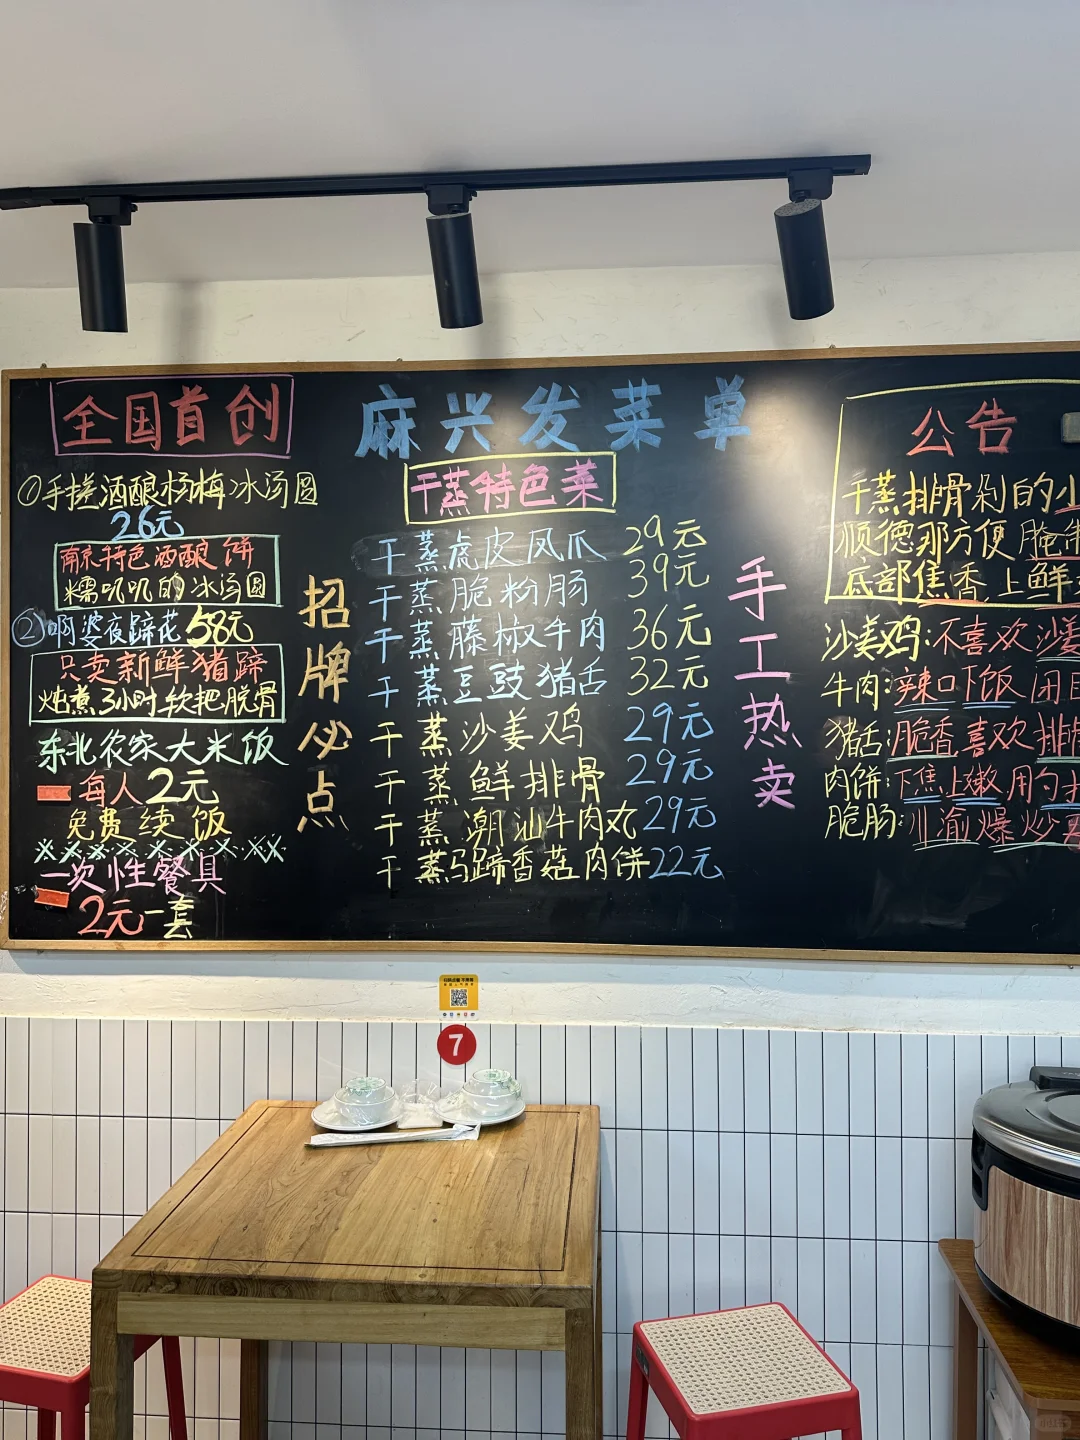 全国首创
①手搓酒酿杨梅冰汤圆
26元
南京特色酒酿饼
糯叽叽的冰汤圆
②啊婆夜蹄花58元
只卖新鲜猪蹄
炖煮3小时软把脱骨
东北农家大米饭
每人2元
免费续饭
一次性餐具
2元一套
招牌必点
麻兴发菜单
干蒸特色菜
干蒸虎皮凤爪 29元
干蒸脆粉肠 39元
干蒸藤椒牛肉 36元
干蒸豆豉猪舌 32元
干蒸沙姜鸡 29元
干蒸鲜排骨 29元
干蒸潮汕牛肉丸 29元
干蒸马蹄香菇肉饼 22元
手工热卖
公告
干蒸排骨剁的小
顺德那方便腌制
底部焦香上鲜
沙姜鸡:不喜欢沙姜
牛肉:辣口下饭闭目
猪舌:脆香喜欢排
肉饼:下焦上嫩用勺
脆肠:川渝爆炒
7